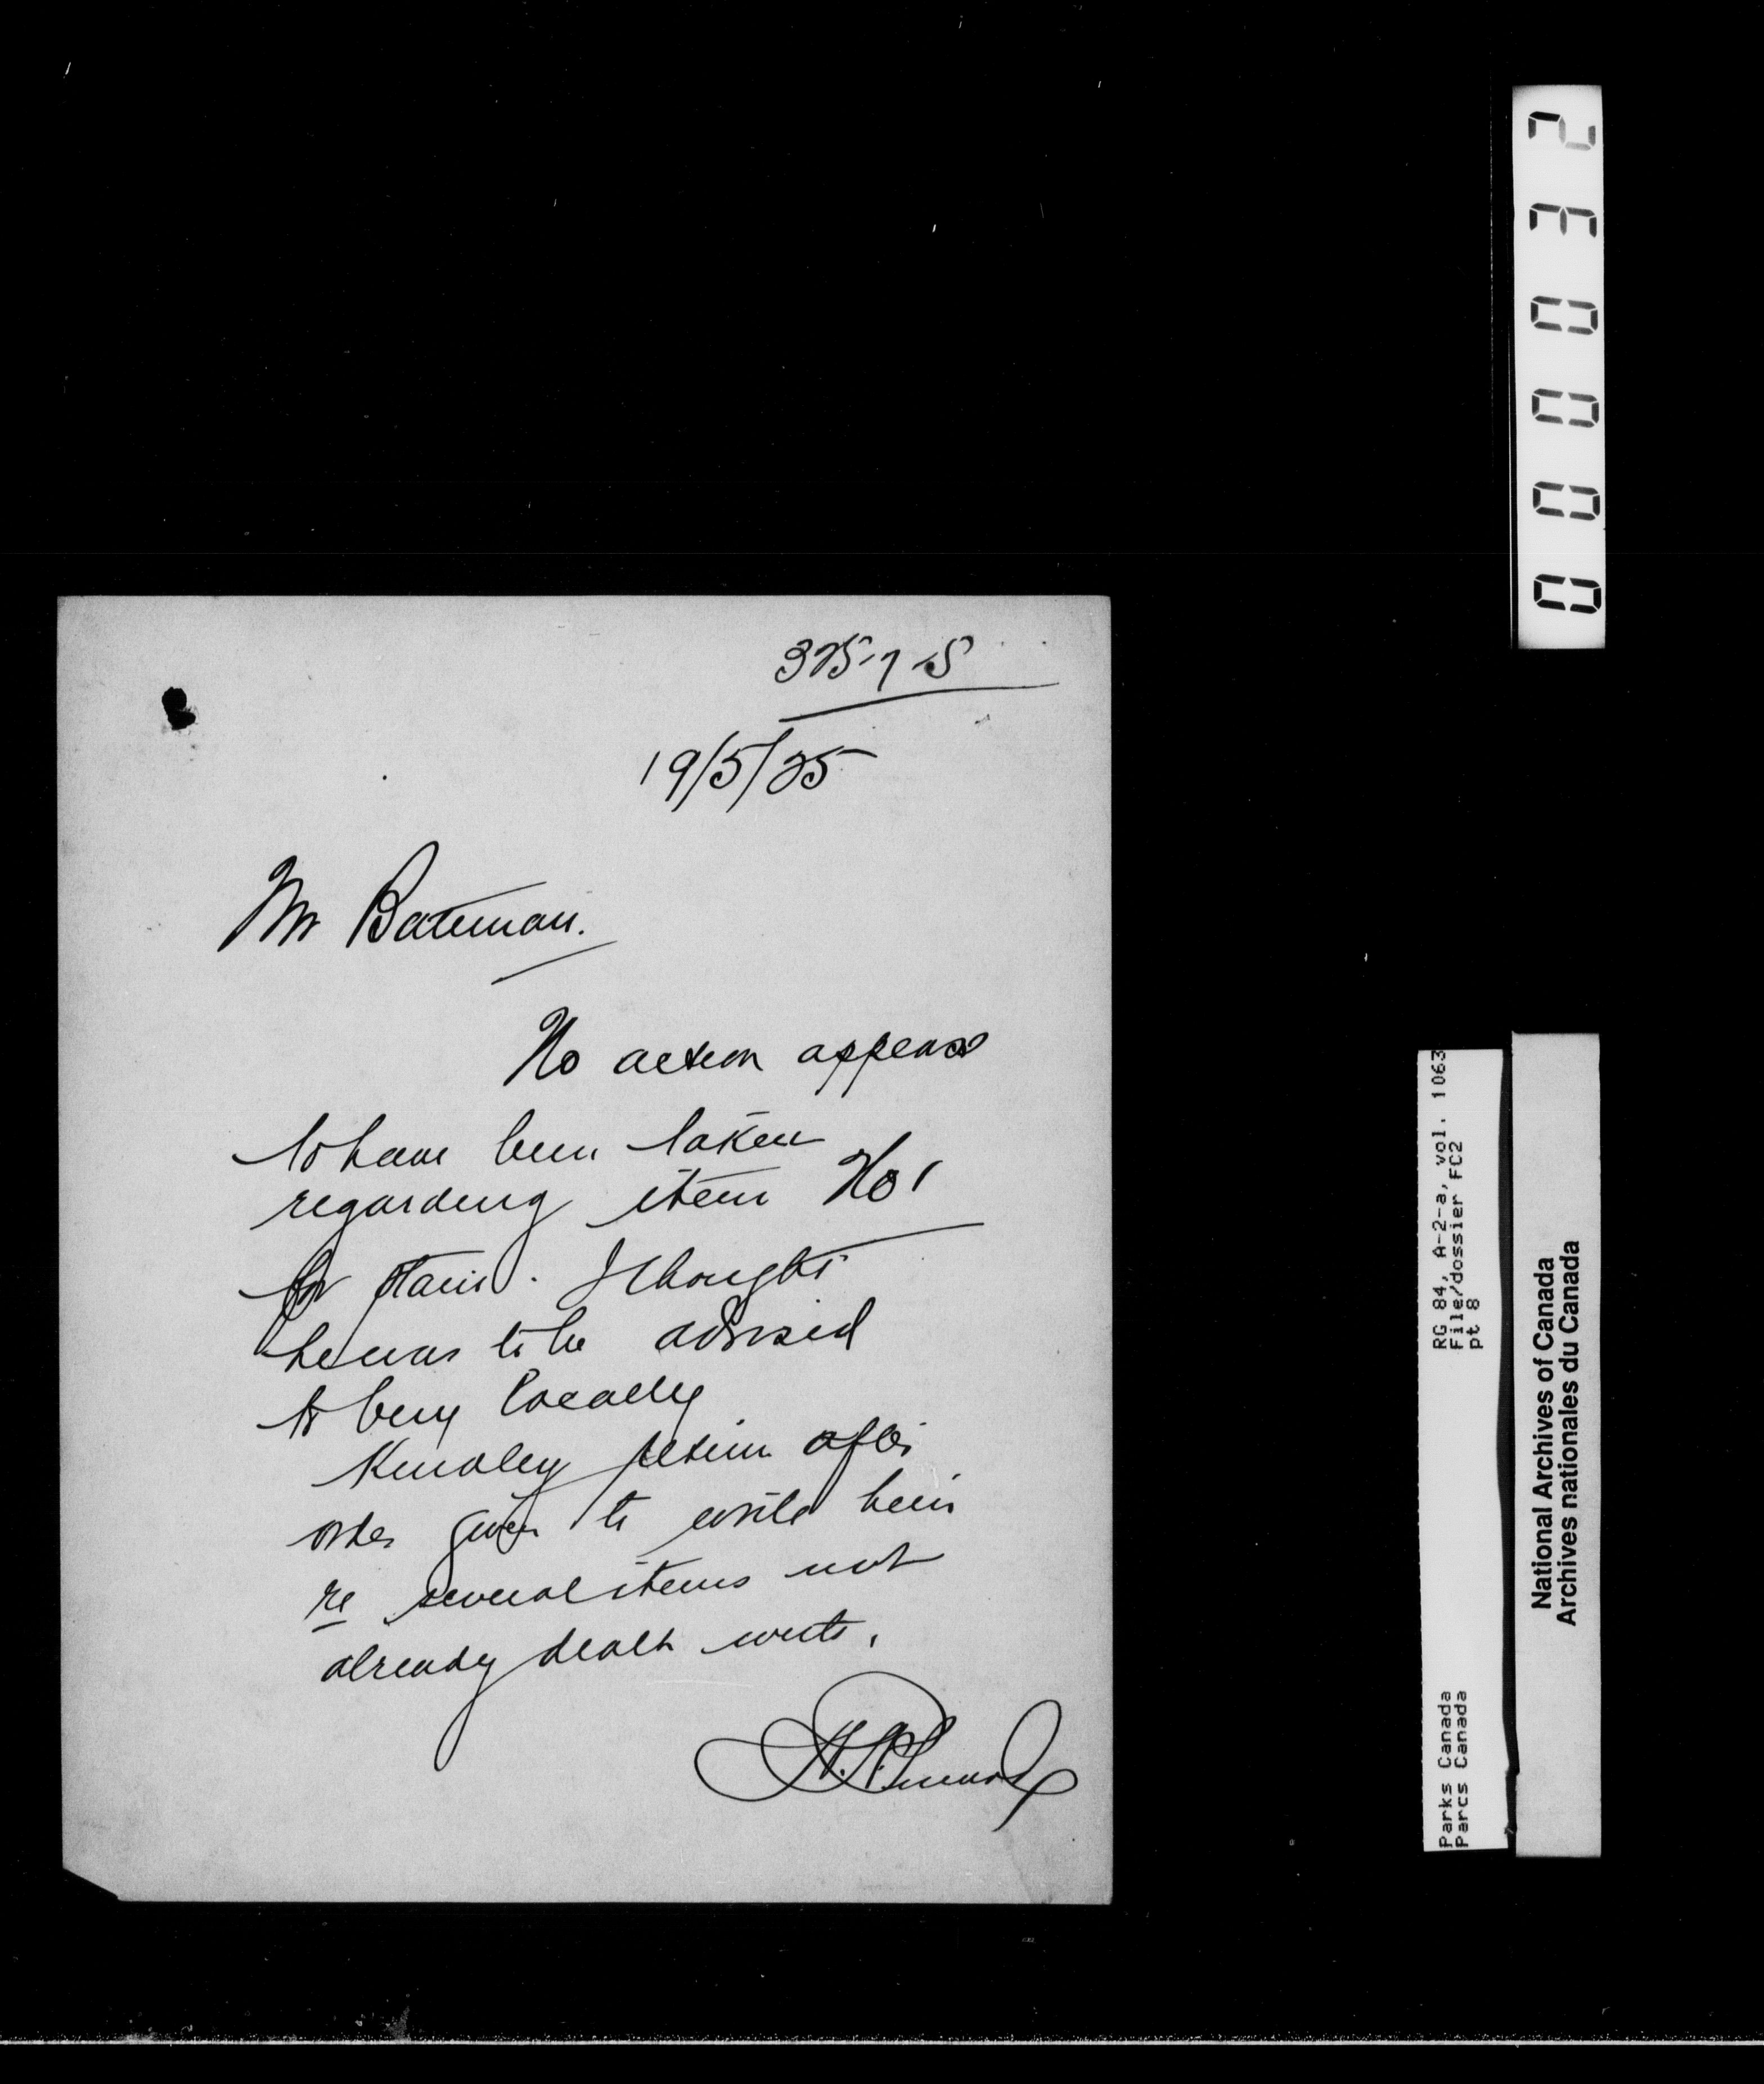 325-1-S
19/5/25
Mr Bateman.
No action appears
to have been taken
regarding item No 1
for stain. I thought
he was to be advised
to buy locally
Kindly return after
order given to write him
re several items not
already dealt with.
000032
RG 84, A-2-a, vol. 1063
File/dossier FC2
pt 8
Parks Canada
Parcs Canada
National Archives of Canada
Archives nationales du Canada